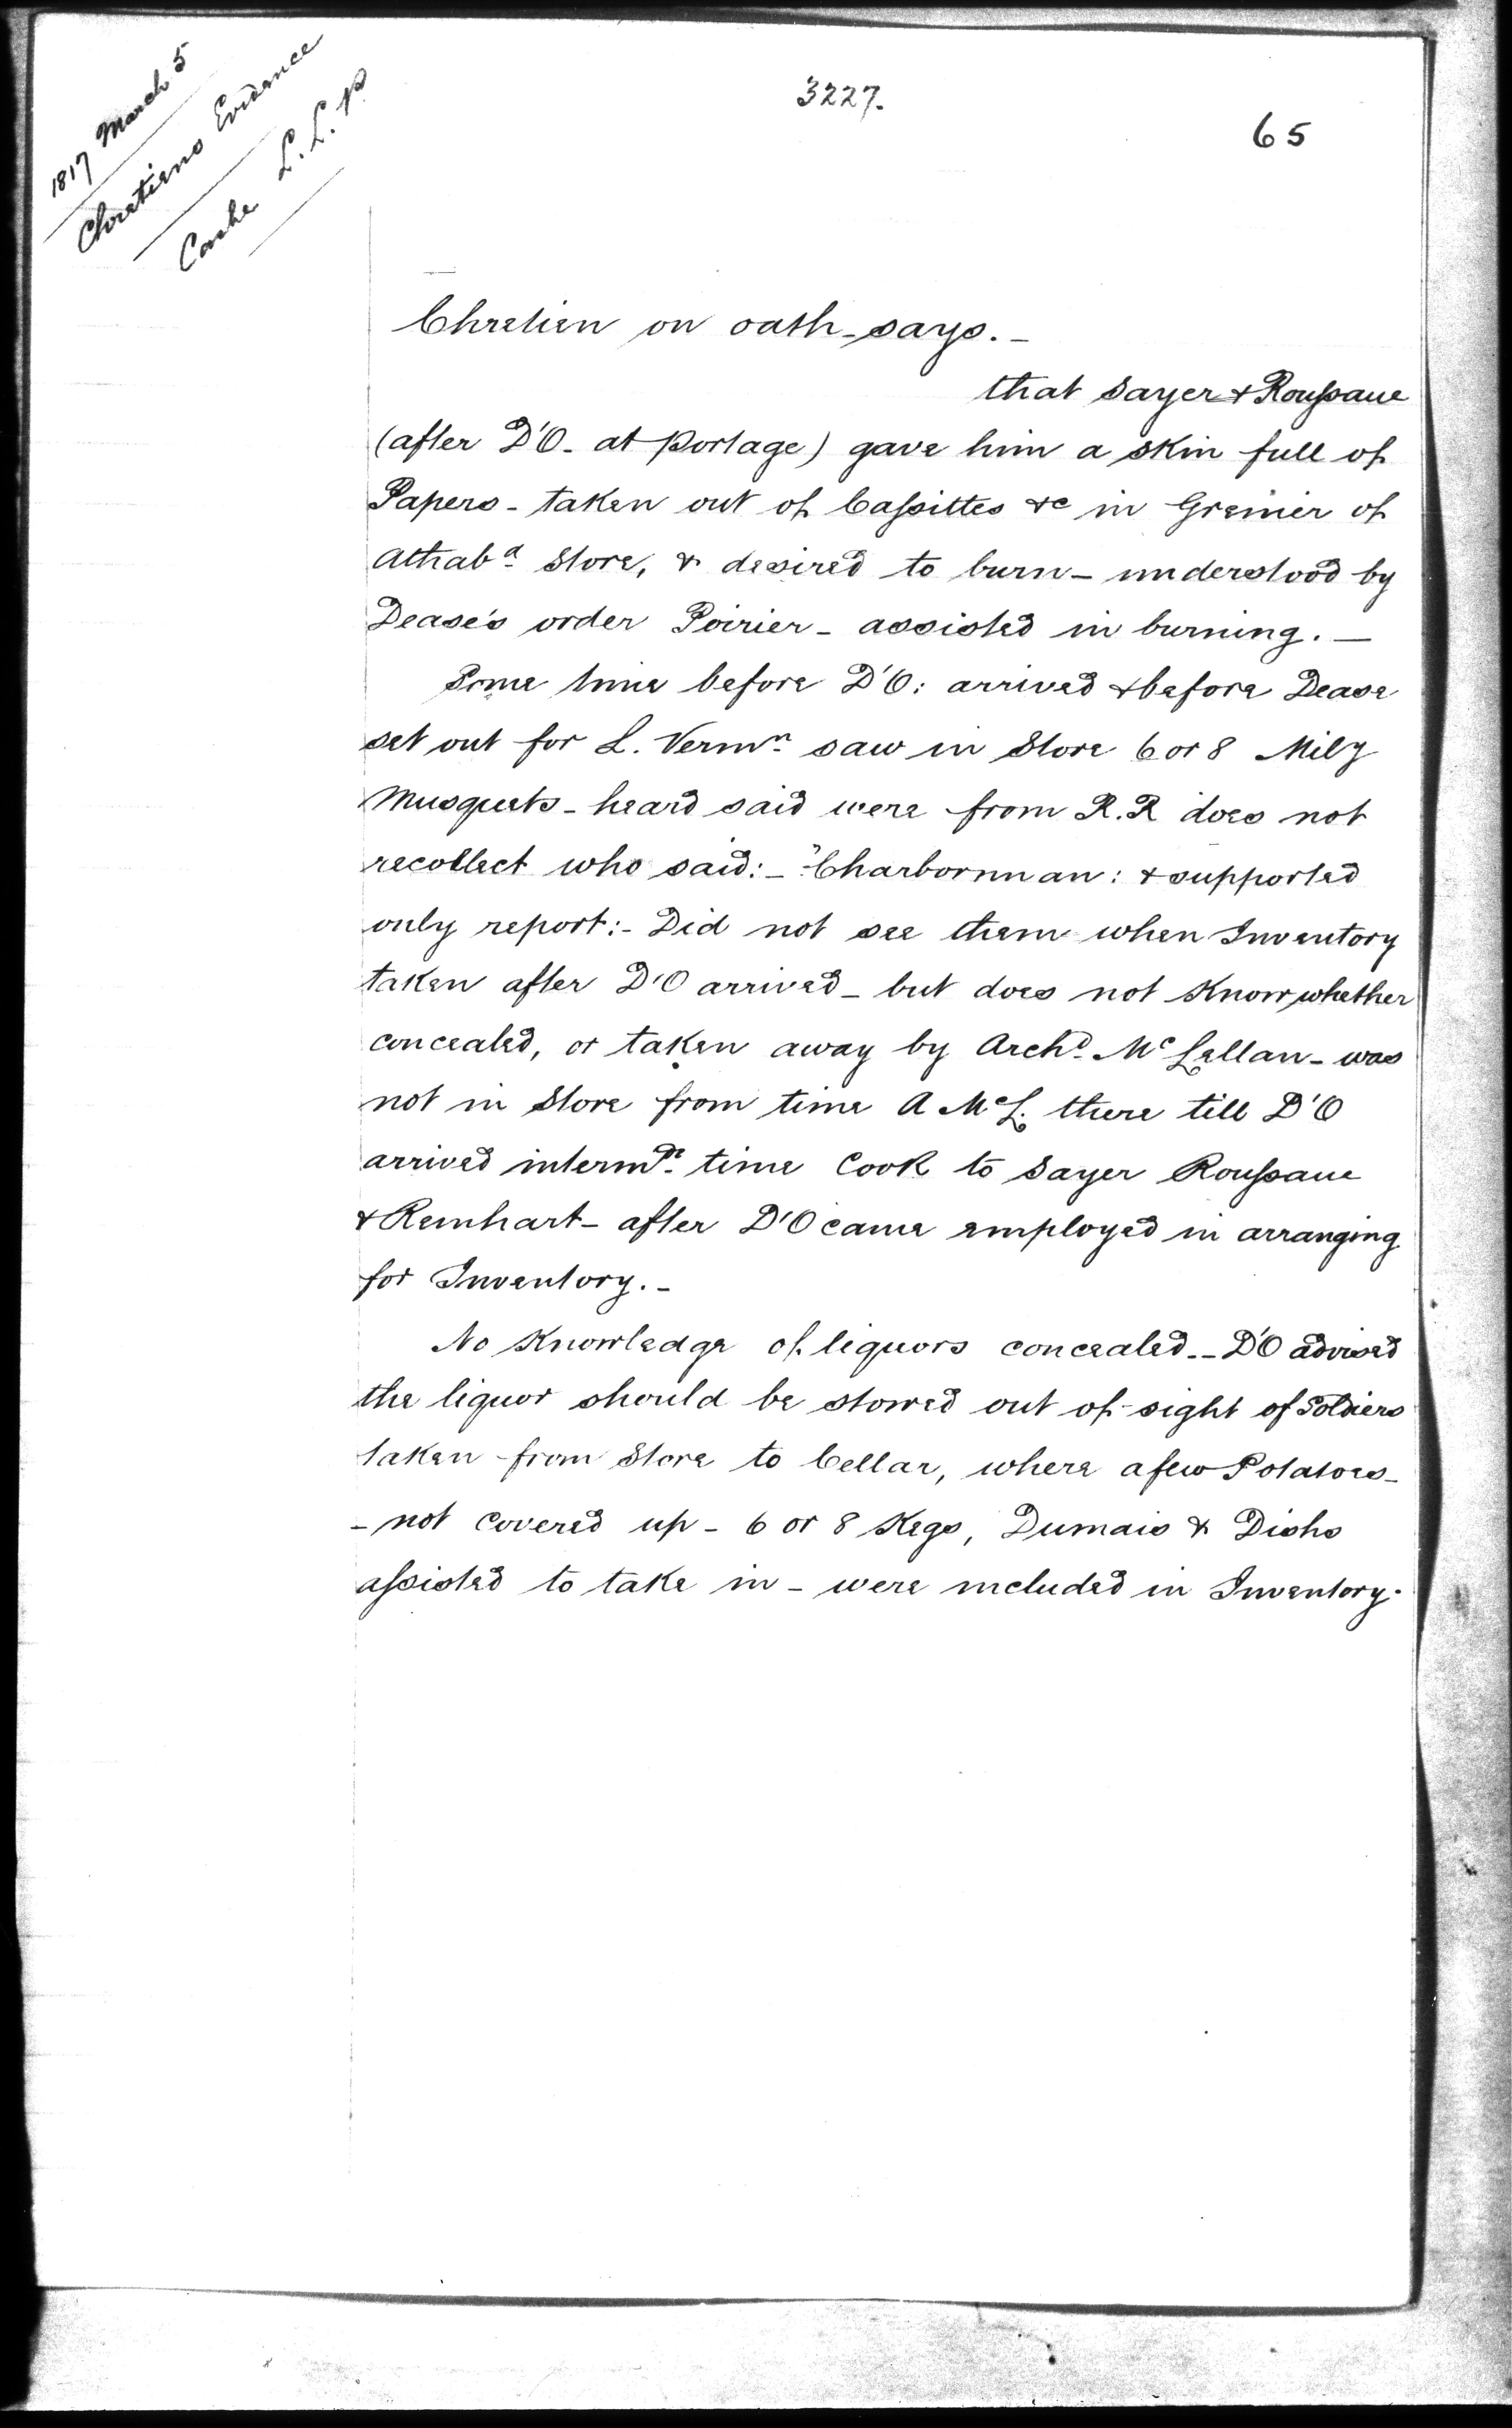 3227.
65
1817 March 5
Chretiens Evidence
Cache L. L. P
Chretien on oath says. -
that Sayer & Roussaue
(after D'O - at portage) gave him a skin full of
Papers - taken out of Cassittes &c in Grenier of
Athaba Store, & desired to burn - understood by
Dease's order Poirier - assisted in burning. -
Some time before D'O: arrived & before Dease
set out for L. Vermn saw in Store 6 or 8 Mily
Musquets - heard said were from R.R does not
recollect who said: - "Charbornnan: & supported
only report: - Did not see them when Inventory
taken after D'O arrived - but does not Know whether
concealed, or taken away by Archd McLellan - was
not in Store from time A McL. there till D'O
arrived intermde time Cook to Sayer Roussaue
& Reinhart - after D'O came employed in arranging
for Inventory. -
No Knowledge of liquors concealed - D'O advised
the liquor should be stowed out of sight of Soldiers
taken from Store to Cellar, where a few Potatoes -
- not covered up - 6 or 8 Kegs, Dumais & Dishs
assisted to take in - were included in Inventory.